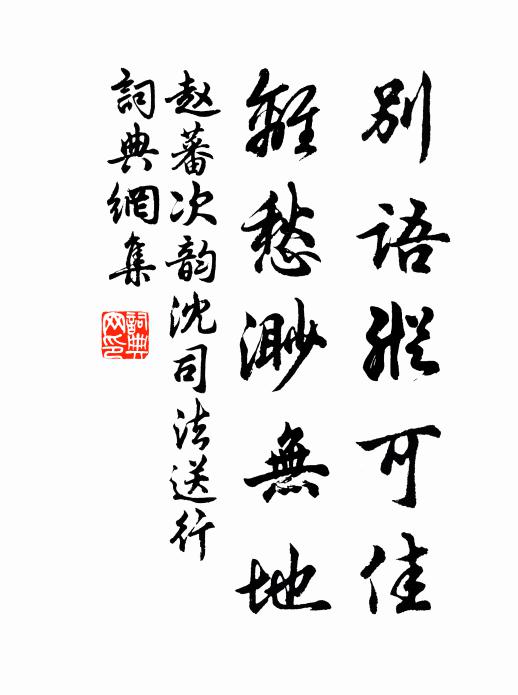 別語縱可佳
離愁渺無地
赵蕃次韵沈司法送行
詞典網集
詞典
网印